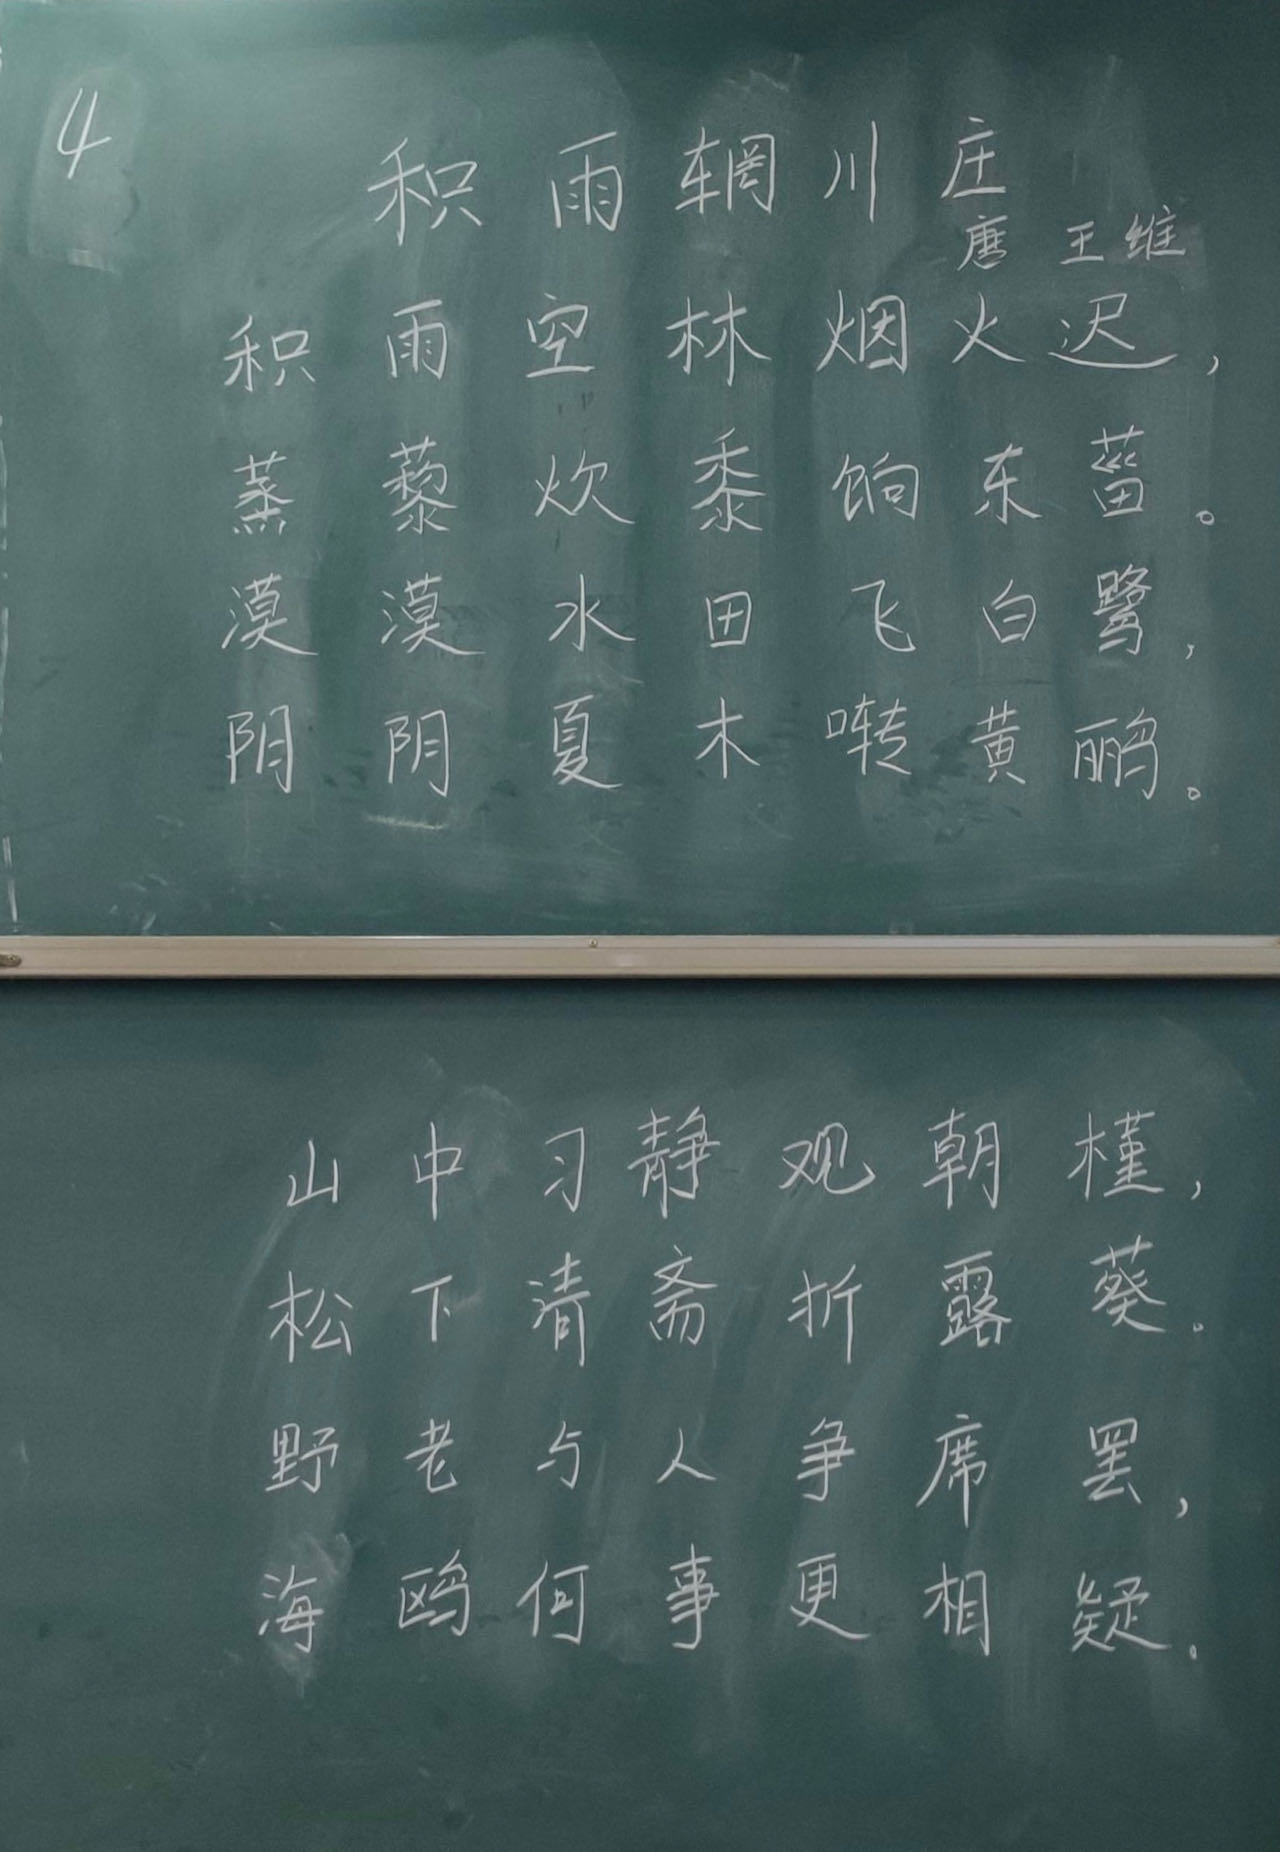 4
积雨辋川庄
唐 王维
积雨空林烟火迟，
蒸藜炊黍饷东菑。
漠漠水田飞白鹭，
阴阴夏木啭黄鹂。
山中习静观朝槿，
松下清斋折露葵。
野老与人争席罢，
海鸥何事更相疑。